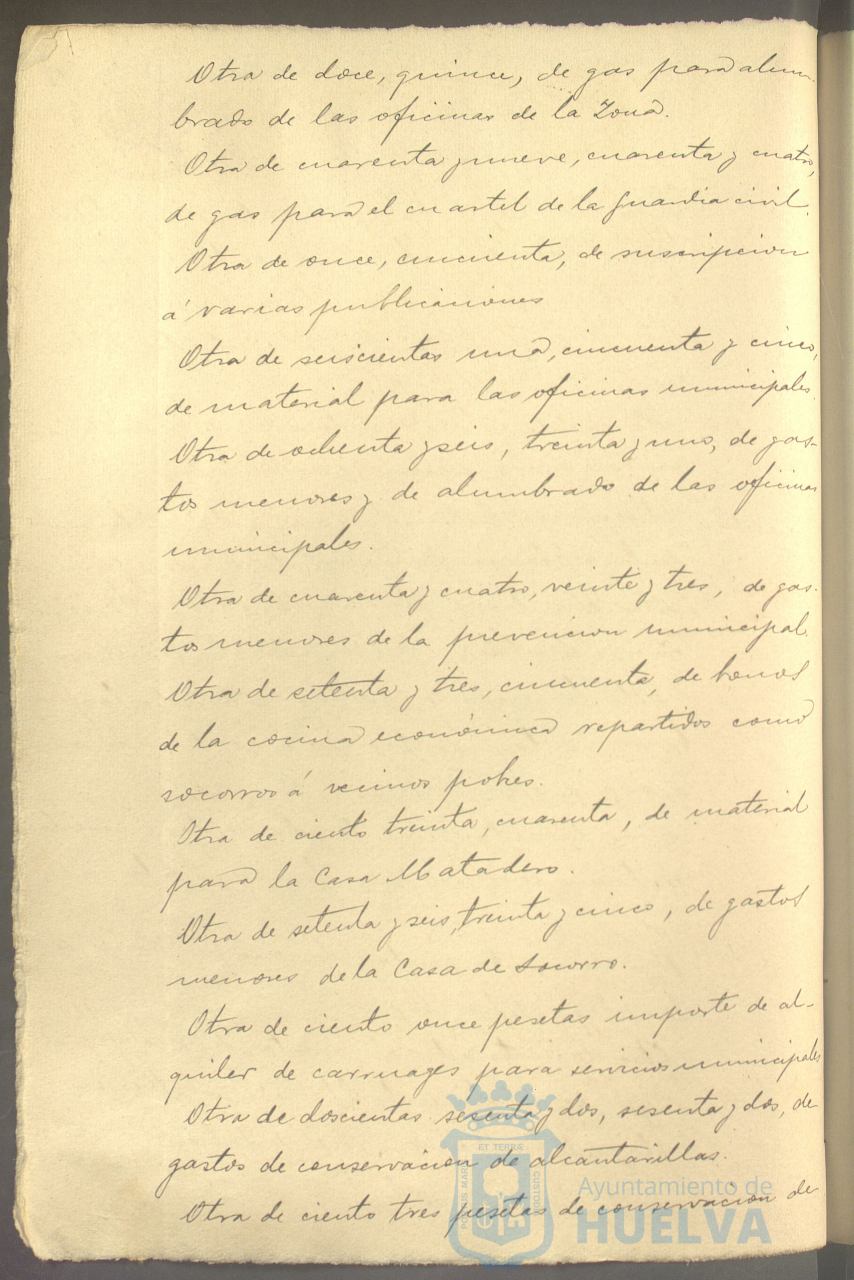 Otra de doce, quince, de gas para alum-
brado de las oficinas de la Zona.
Otra de cuarenta y nueve, cuarenta y cuatro,
de gas para el cuartel de la Guardia civil.
Otra de once, cincuenta, de suscripcion
á varias publicaciones
Otra de seiscientas una, cincuenta y cinco,
de material para las oficinas municipales.
Otra de ochenta y seis, treinta y uno, de gas-
tos menores y de alumbrado de las oficinas
municipales.
Otra de cuarenta y cuatro, veinte y tres, de gas-
tos menores de la prevencion municipal.
Otra de setenta y tres, cincuenta, de bonos
de la cocina económica repartidos como
socorros á vecinos pobres.
Otra de ciento treinta, cuarenta, de material
para la Casa Matadero.
Otra de setenta y seis, treinta y cinco, de gastos
menores de la Casa de Socorro.
Otra de ciento once pesetas importe de al-
quiler de carruages para servicios municipales
Otra de doscientas sesenta y dos, sesenta y dos, de
gastos de conservacion de alcantarillas.
Otra de ciento tres pesetas de conservacion de
PORTUS MARIS ET TERRÆ CUSTODIA
Ayuntamiento de
HUELVA